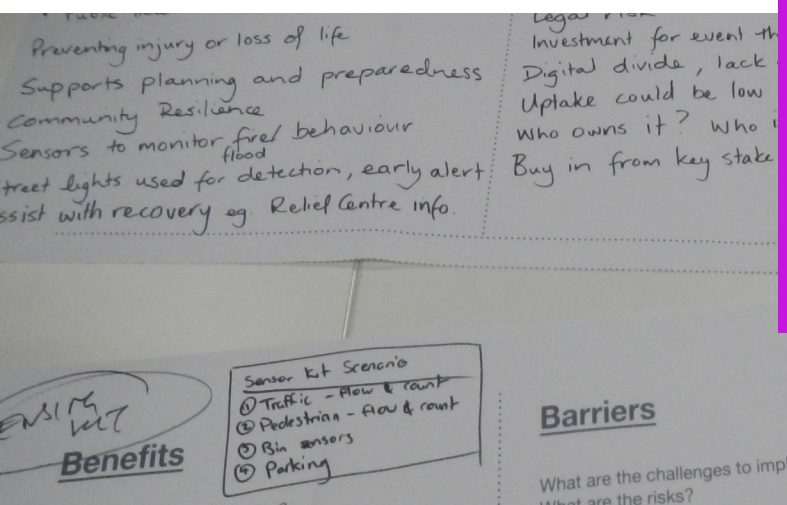 Preventing injury or loss of life
Supports planning and preparedness
Community Resilience
Sensors to monitor fire/ behaviour
flood
treet lights used for detection, early alert
ssist with recovery eg. Relief Centre info.
Legal risk
Investment for event th
Digital divide, lack
Uptake could be low
Who owns it? Who i
Buy in from key stake
ENSING KIT
Benefits
Sensor Kit Scenario
① Traffic - flow & count
② Pedestrian - flow & count
③ Bin sensors
④ Parking
Barriers
What are the challenges to imp
What are the risks?